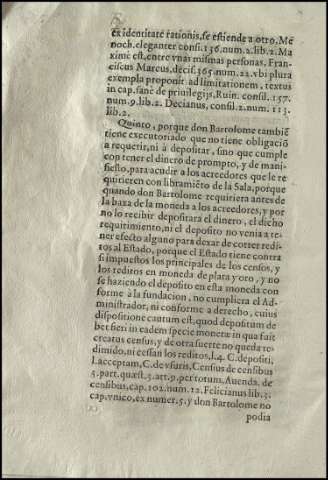 ex identitate rationis, se estiende a otro. Me
noch. eleganter consi. 156. num. 2. lib. 2. Ma
ximè est, entre vnas mismas personas. Fran-
ciscus Marcus, decis. 365. num. 22. vbi plura
exempla proponit ad limitationem, textus
in cap. sanè de priuilegijs, Ruin. consil. 157.
num. 9. lib. 2. Decianus, consil. 2. num. 113.
lib. 2.
Quinto, porque don Bartolome tambiẽ
tiene executoriado que no tiene obligaciõ
a requerir, ni à depositar, sino que cumple
con tener el dinero de prompto, y de mani-
fiesto, para acudir a los acreedores que le re
quirieren con libramiẽto de la Sala, porque
quando don Bartolome requiriera antes de
la baxa de la moneda a los acreedores, y por
no lo recibir depositara el dinero, el dicho
requirimiento, ni el deposito no venia a te-
ner efecto alguno para dexar de correr redi-
tos al Estado, porque el Estado tiene contra
si impuestos los principales de los censos, y
los reditos en moneda de plata y oro, y no
se haziendo el deposito en esta moneda con
forme à la fundacion, no cumpliera el Ad-
ministrador, ni conforme a derecho, cuius
dispositione cautum est, quod depositum de
bet fieri in eadem specie monetæ in qua fuit
creatus census, y de otra suerte no queda re-
dimido, ni cessan los reditos, l. 4. C. depositi,
l. acceptam, C. de vsuris, Census de censibus
5. part. quæst. 5. art. 9. per totum, Auenda. de
censibus, cap. 102. num. 12. Felicianus lib. 3.
cap. vnico, ex numer. 5. y don Bartolome no
podia